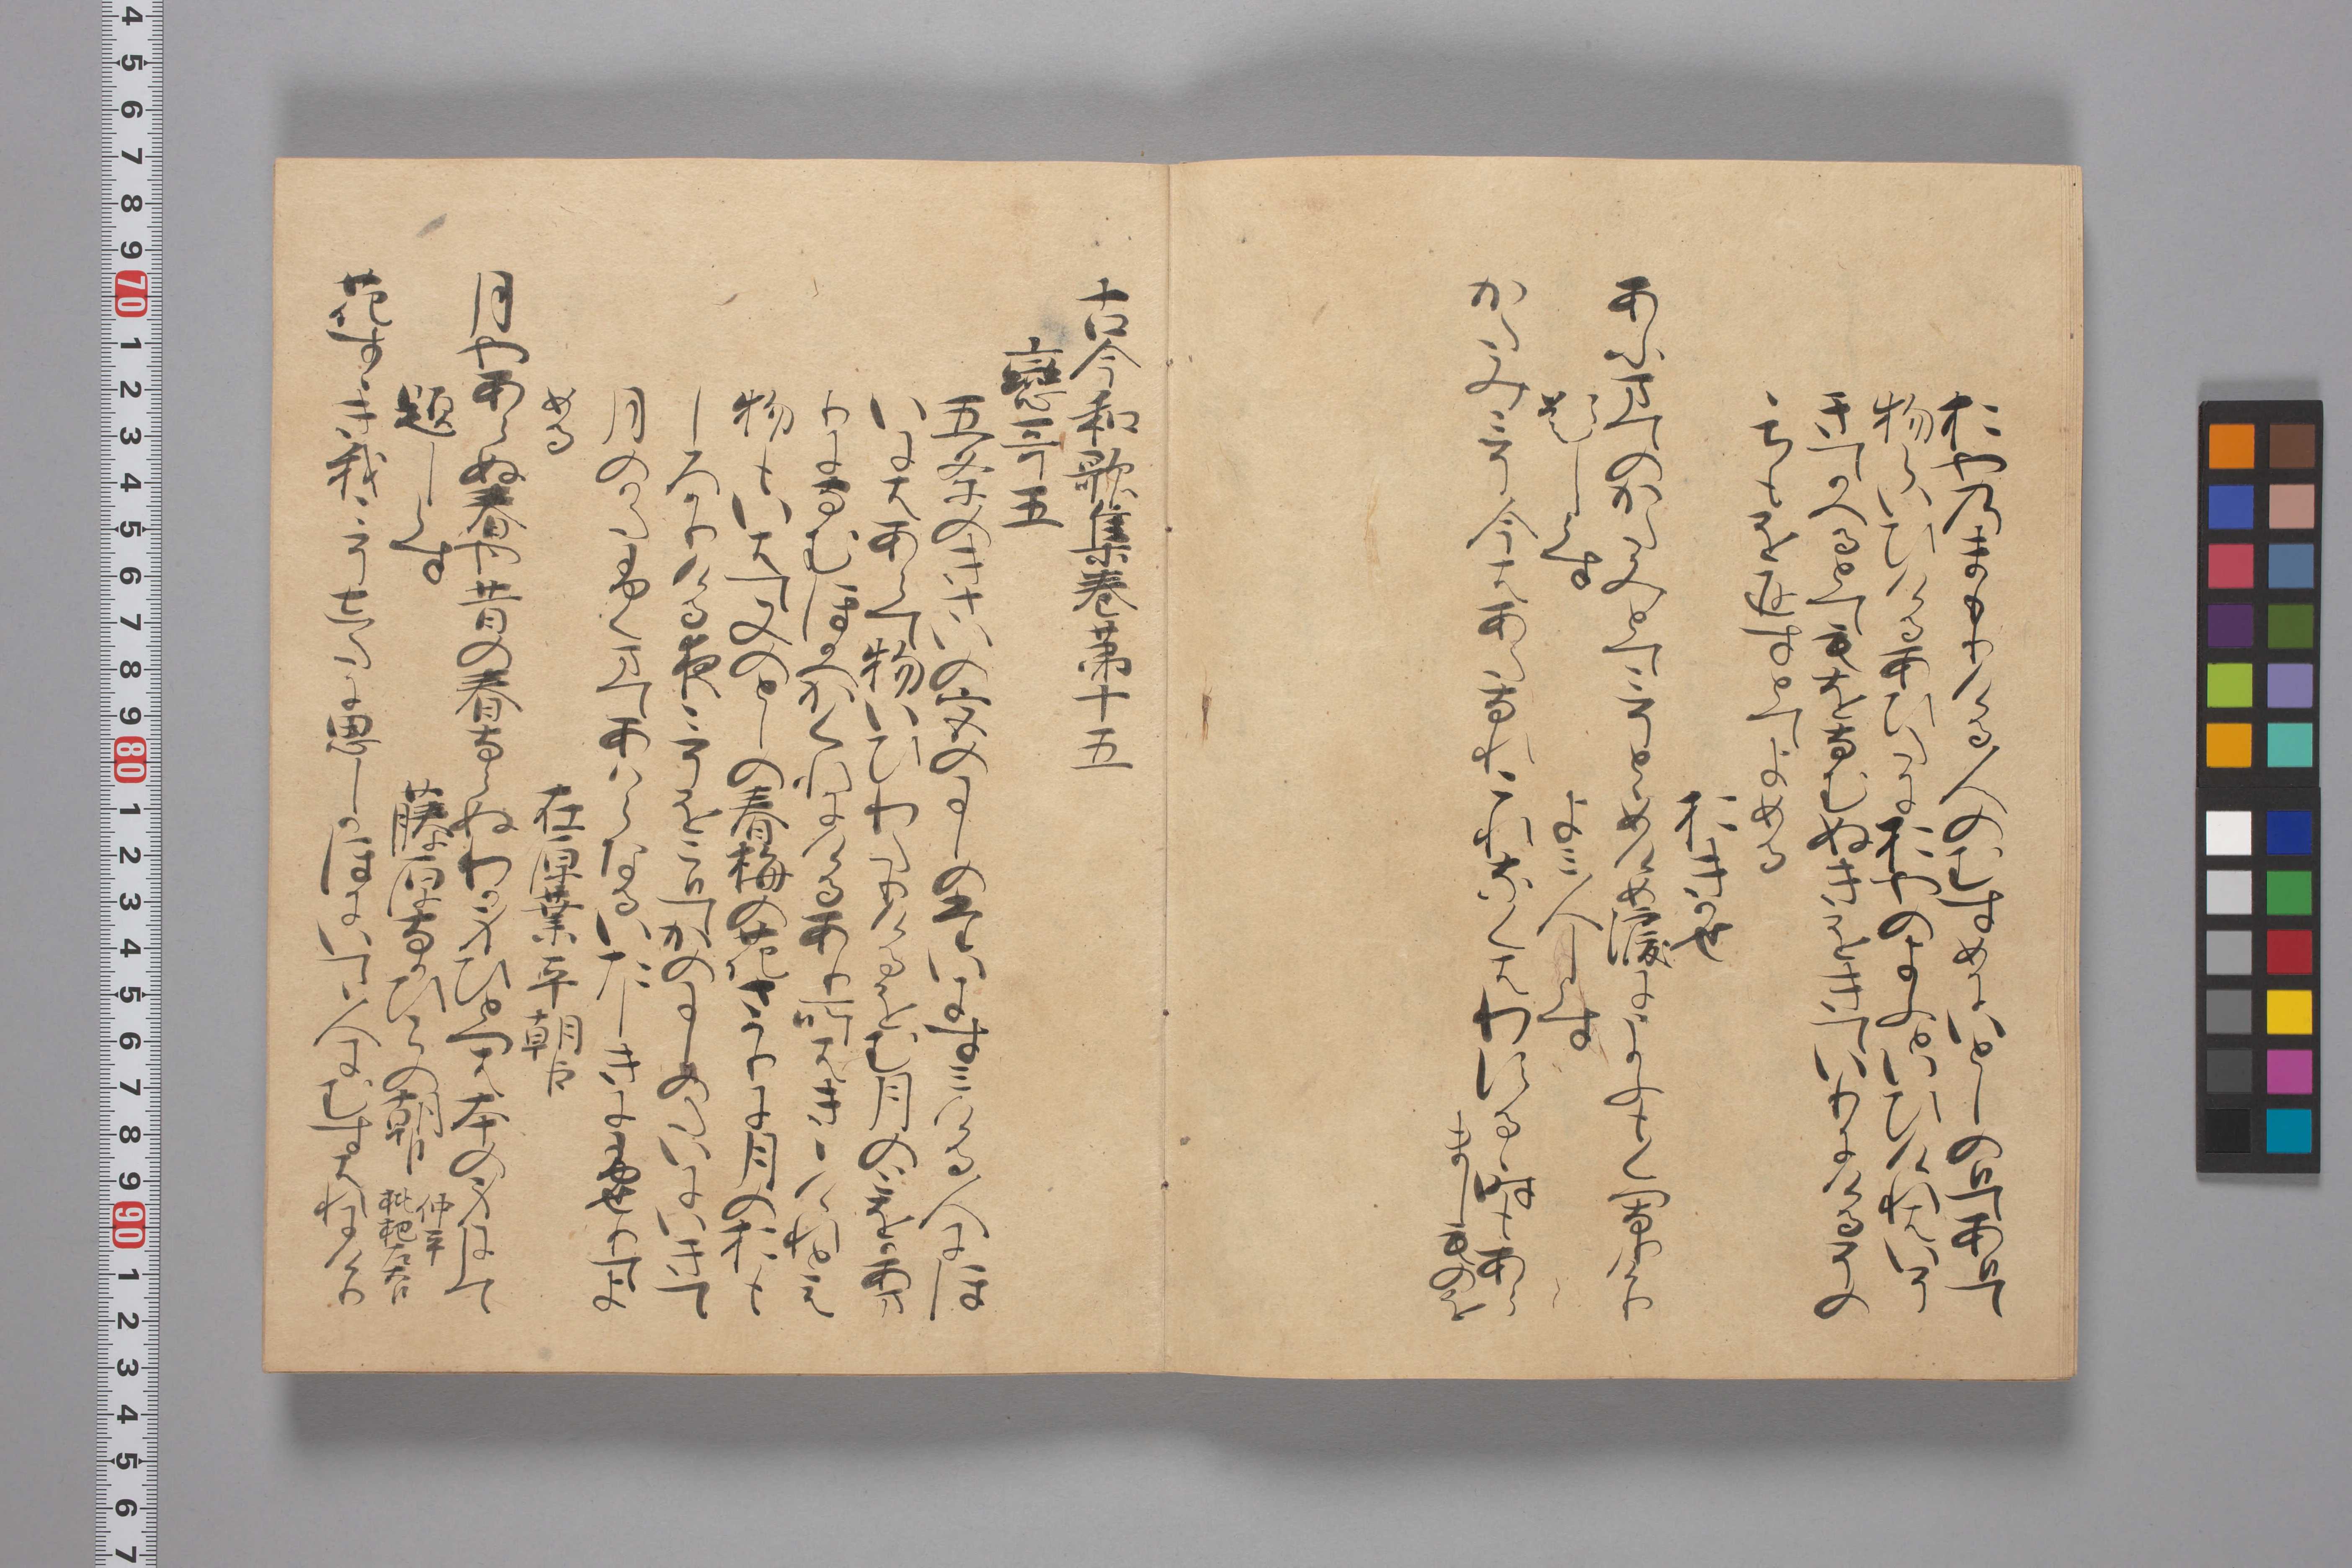 おやのまもりける人のむすめにいとしのひにあひて
物らいひけるあひたにおやのよふといひけれは
いそきかへるとてもをなむぬきをきていりにけるその
のちもをかへすとてよめる
おきかせ
あふまてのかたみとてこそとゝめけめ涙にうかふもくつなりけり
題しらす　よみ人しらす
かたみこそ今はあたなれこれなくはわするゝ時もあらまし
物を
古今和歌集巻第十五
戀哥五
五条のきさいの宮のにしのたいにすみける人にほ
いにはあらて物いひわたりけるをむ月のとをかあま
りになむほかへかくれにけるあり所はきゝけれと
え物もいはて又のとしの春梅の花さかりに月のおも
しろかりける夜こそをこひてかのにしのたいにいきて
月のかたふくまてあはらなるいたしきにふせりてよ
める
在原業平朝臣
月やあらぬ春や昔の春ならぬわか身ひとつはもとの身にして
題しらす
藤原なかひらの朝臣　仲平　枇杷左大臣
花すゝき我こそしたに思しかほにいてゝ人にむすはれにけり